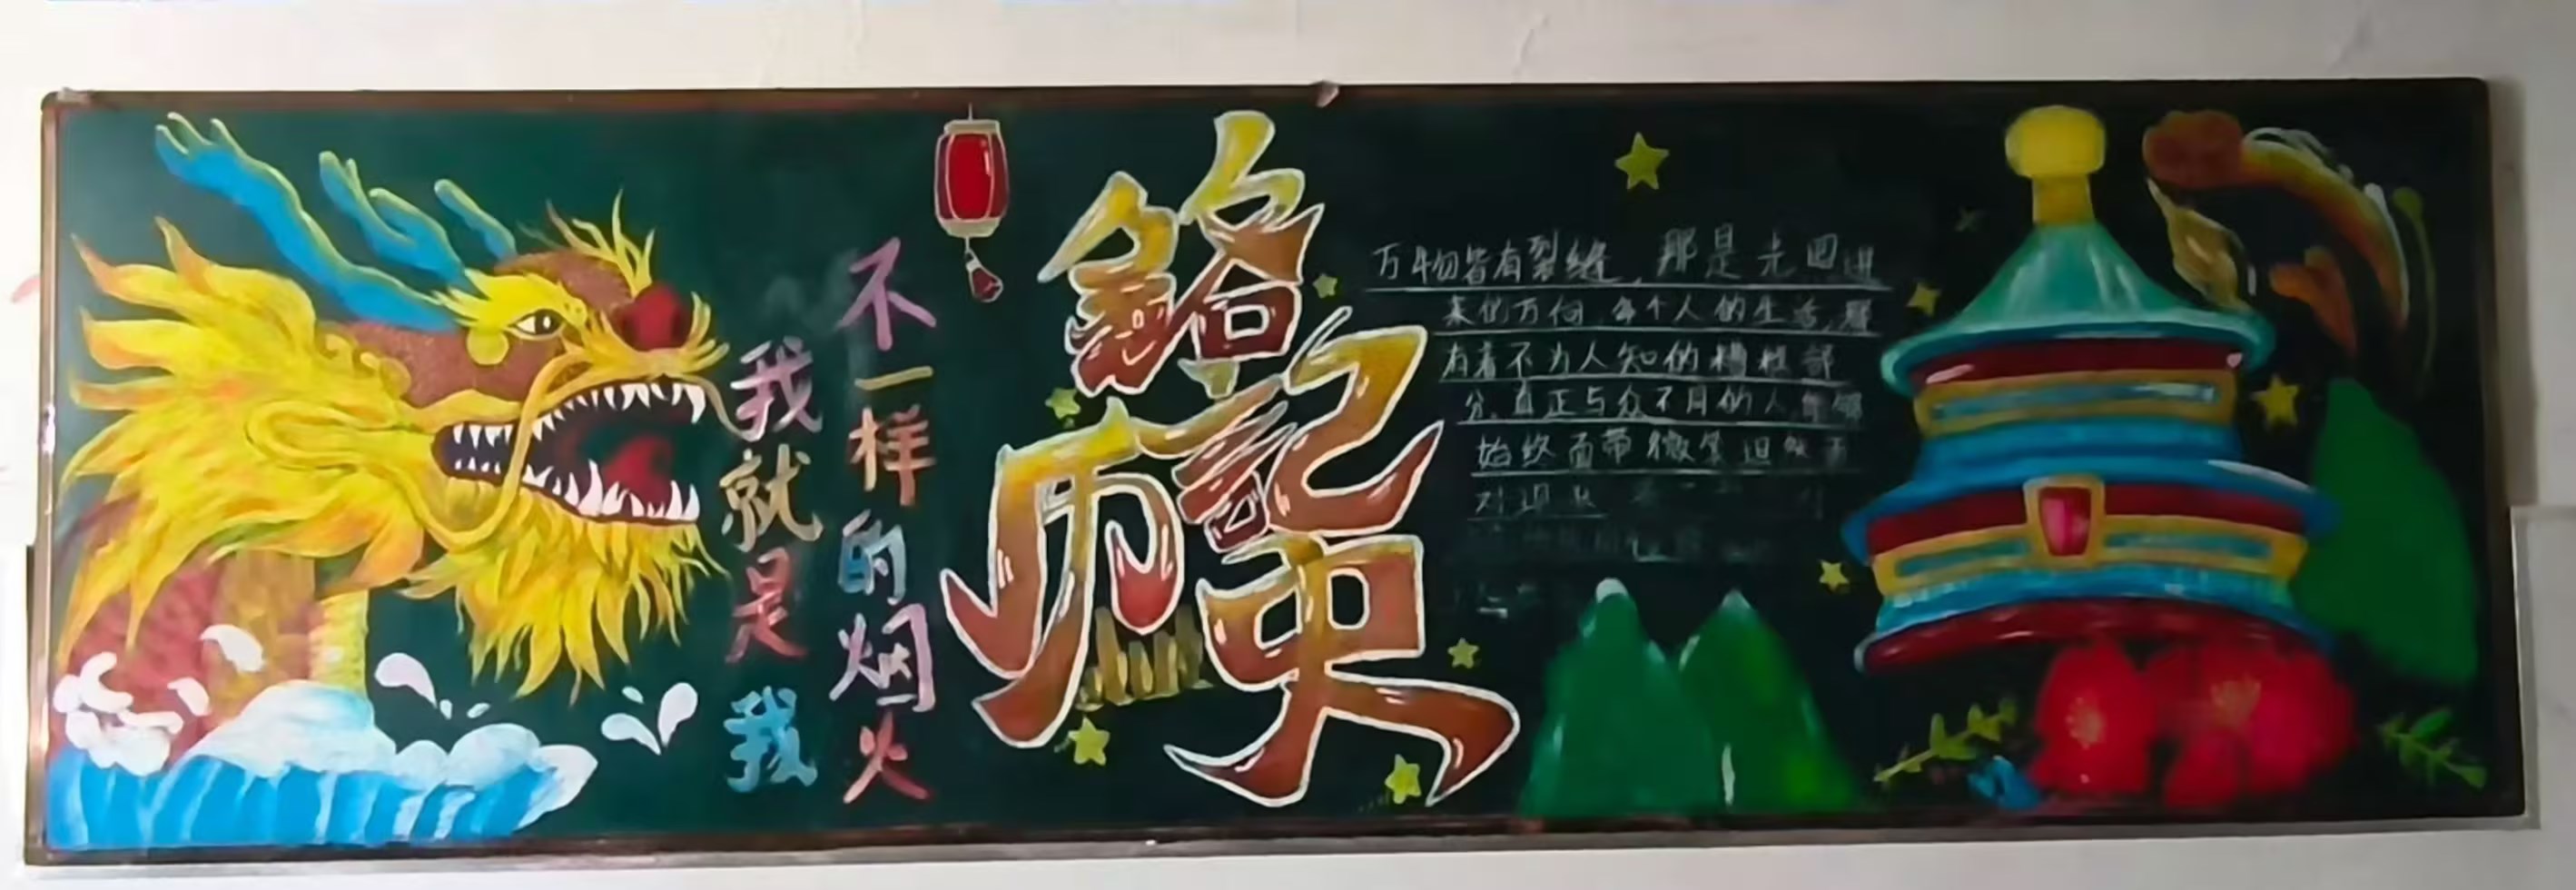 我就是我
不一样的烟火
銘記
历史
万物皆有裂缝,那是光回进
来的方向,每个人的生活,都
有着不为人知的糟糕部
分,真正与众不同的人能够
始终面带微笑坦然面
对